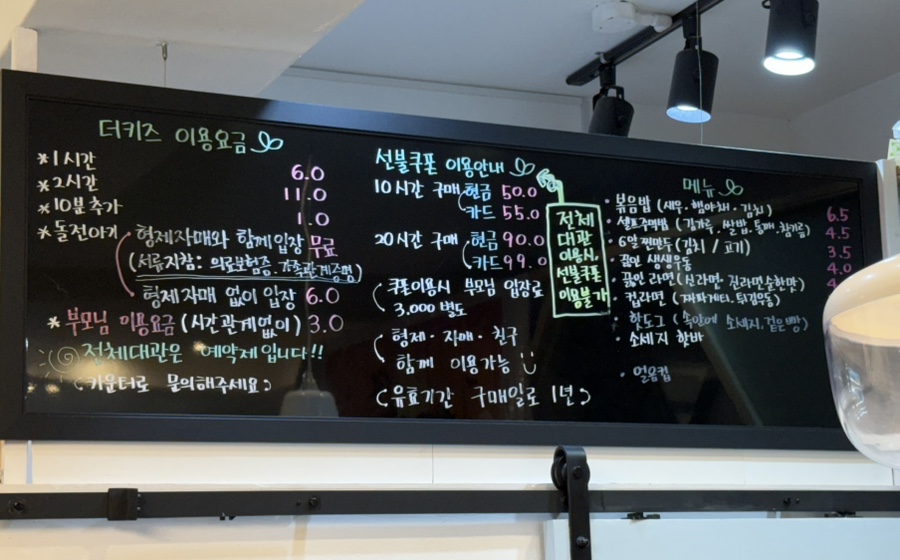 더키즈 이용요금
*1시간 6.0
*2시간 11.0
*10분추가 1.0
*돌전아기
형제자매와 함께입장 무료
(서류지참: 의료보험증.가족관계증명)
형제자매 없이 입장 6.0
*부모님 이용요금 (시간관계없이) 3.0
전체대관은 예약제입니다!!
(카운터로 문의해주세요)
선불쿠폰 이용안내
10시간 구매 현금 50.0
카드 55.0
20시간 구매 현금 90.0
카드 99.0
쿠폰이용시 부모님 입장료
3,000 별도
형제·자매·친구
함께 이용가능
(유효기간 구매일로 1년)
전체
대관
이용시,
선불쿠폰
이용불가
메뉴
·볶음밥 (새우·햄야채·김치) 6.5
·셀프주먹밥 (김가루·쌀밥·참기름) 4.5
·6알 찐만두 (김치/고기) 3.5
·끓인 생생우동 4.0
·끓인라면 (신라면·진라면순한맛)
·컵라면 (짜파게티, 튀김우동)
·핫도그 (속안에 소세지, 겉은빵)
·소세지 핫바
·얼음컵